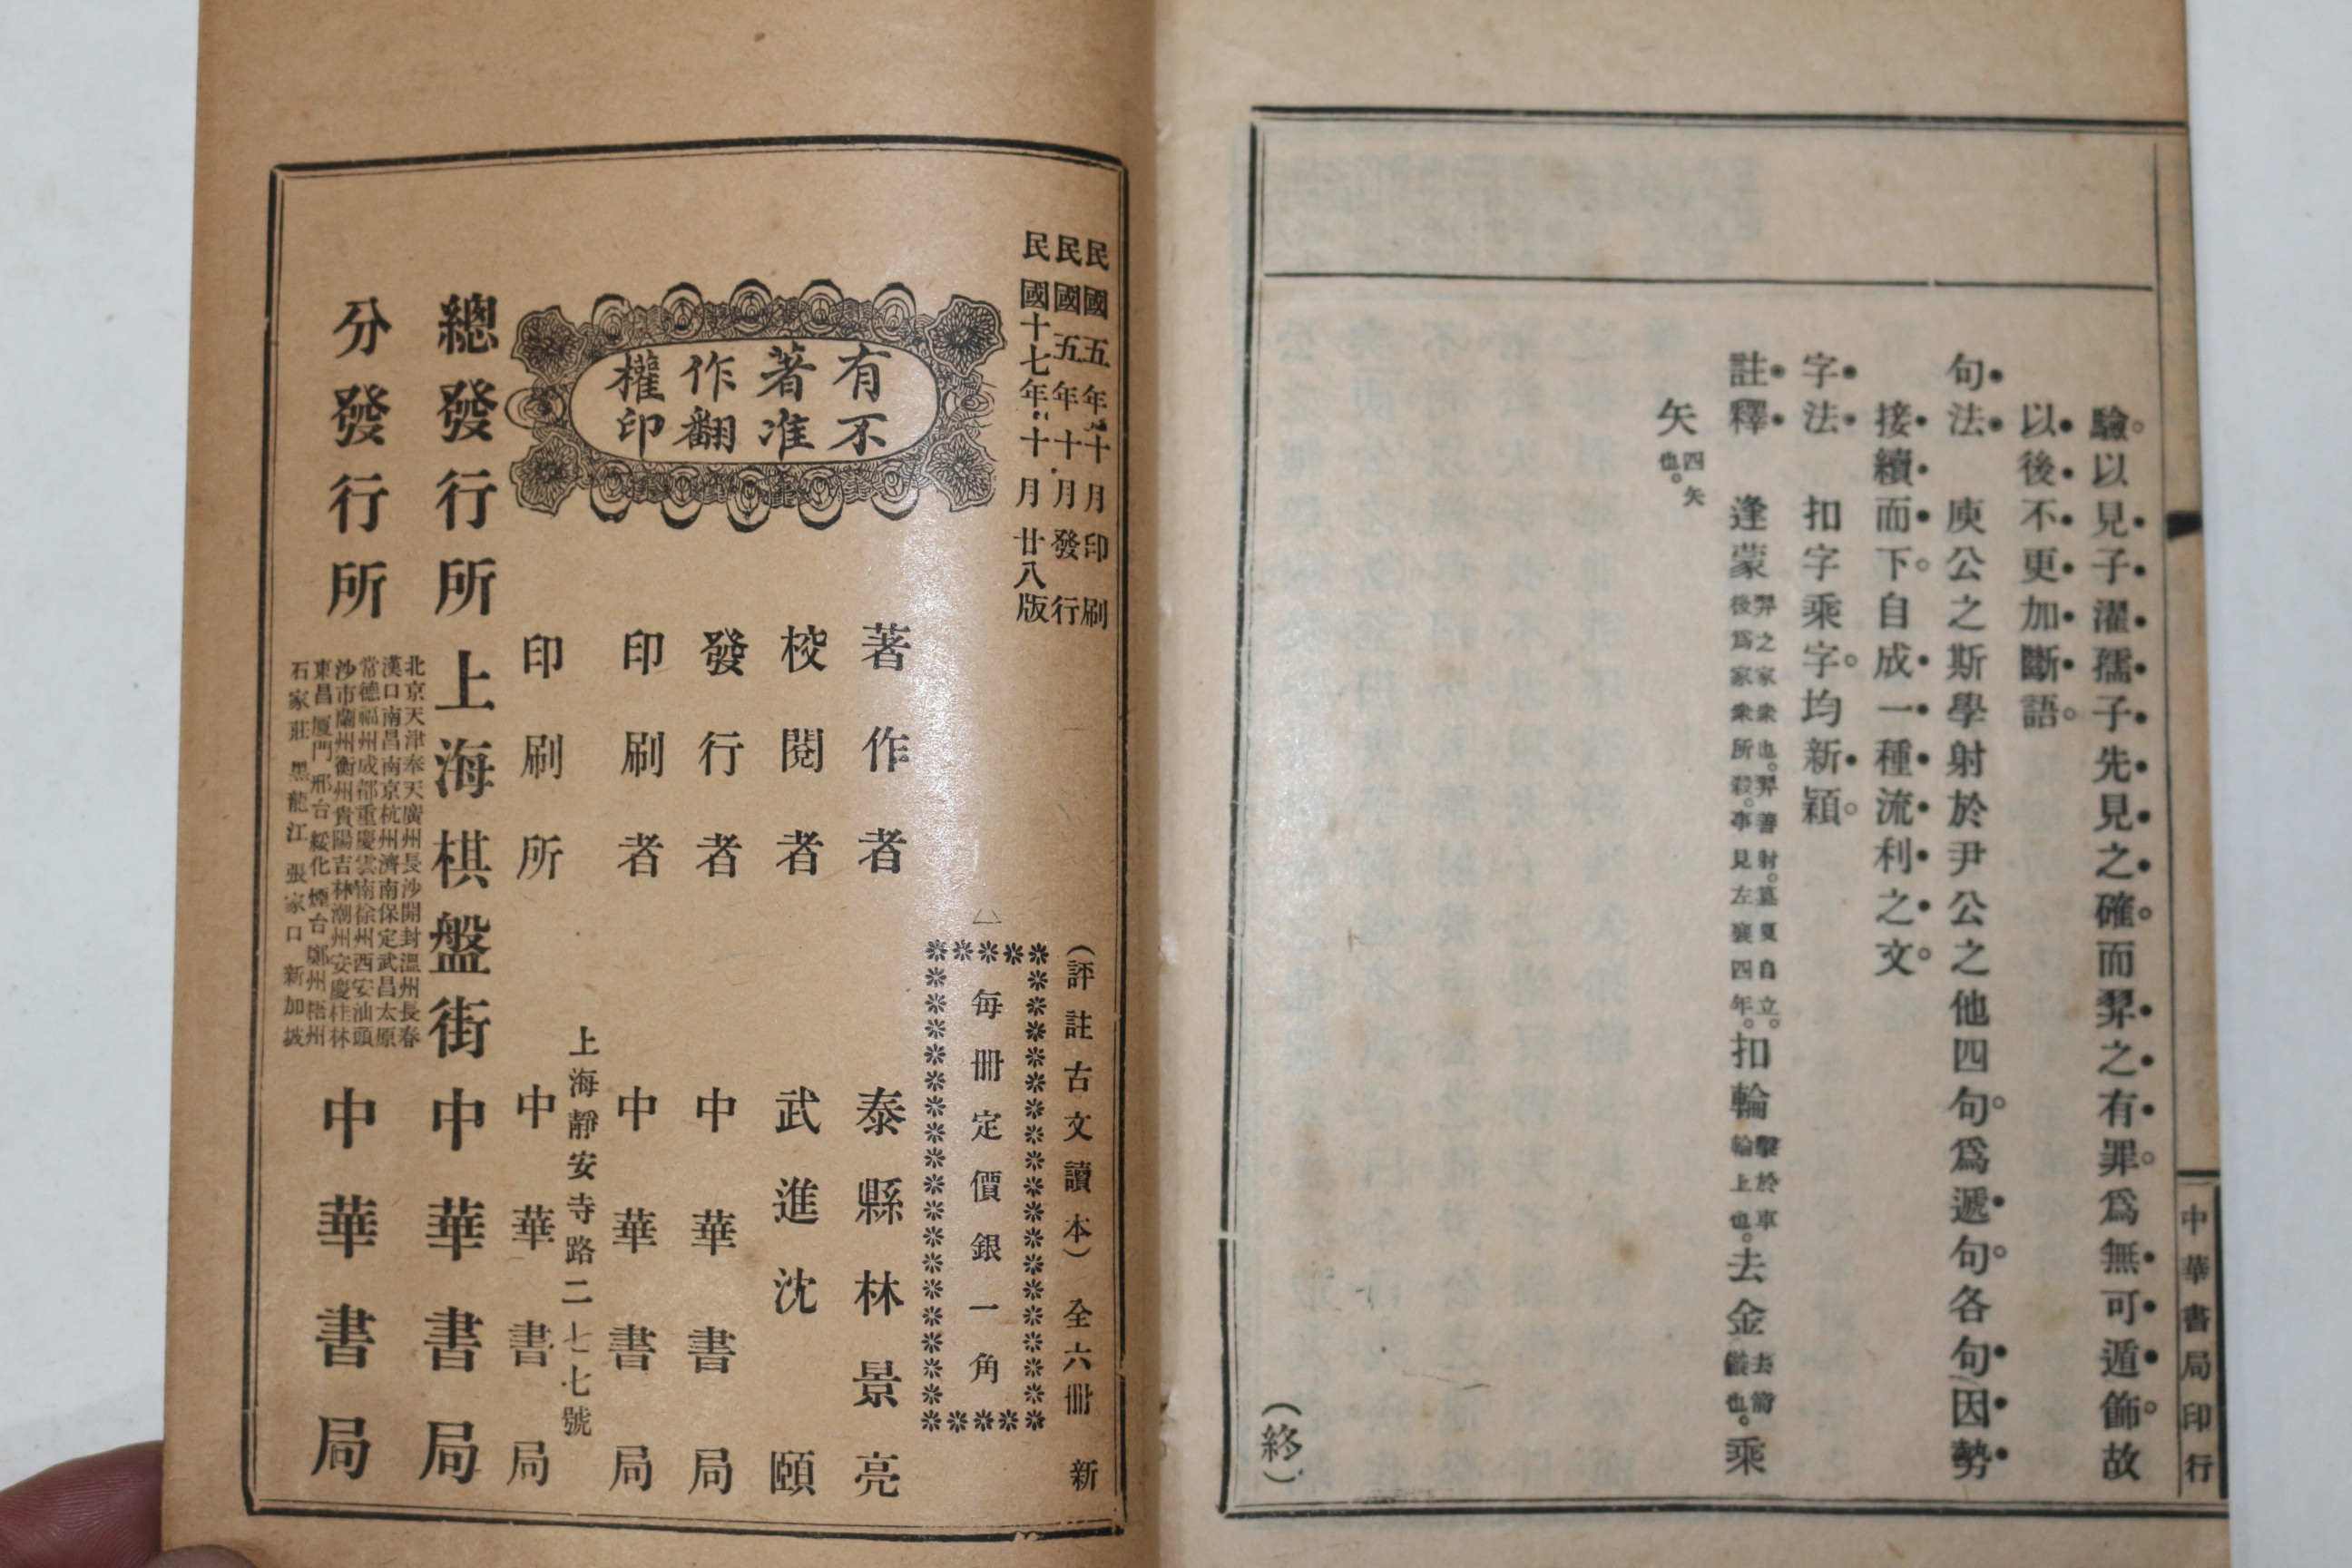 驗。以見子濯孺子先見之確。而羿之有罪。爲無可遁飾。故
以後不更加斷語。
句法 庾公之斯學射於尹公之他四句。爲遞句。各句因勢
接續而下。自成一種流利之文。
字法 扣字乘字。均新穎。
註釋 逢蒙 羿之家衆也。羿善射。篡夏自立。後爲家衆所殺。事見左襄四年。 扣輪 擊於車輪上也。 去金 去箭鏃也。 乘
矢 四矢也。
(終)
中華書局印行
民國五年十月印刷
民國五年十月發行
民國十七年十月廿八版
(評註古文讀本) 全六冊 新
每冊定價銀一角
有著作權
不准翻印
著作者 泰縣林景亮
校閱者 武進沈頤
發行者 中華書局
印刷者 中華書局
上海靜安寺路二七七號
印刷所 中華書局
總發行所 上海棋盤街 中華書局
分發行所 中華書局
北京天津奉天廣州長沙開封溫州長春
漢口南昌南京杭州濟南保定武昌太原
常德福州成都重慶雲南徐州西安汕頭
沙市蘭州衡州貴陽吉林潮州安慶桂林
東昌廈門邢台綏化煙台鄭州梧州
石家莊 黑龍江 張家口 新加坡